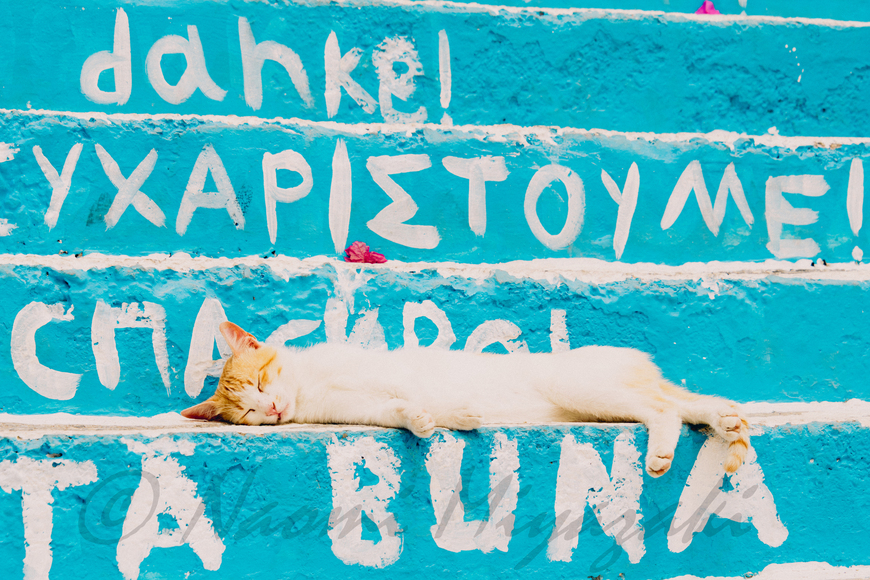 danke!
ΥΧΑΡΙΣΤΟΥΜΕ!
СПАСИБО!
TA BUNA
© Naomi Miyazaki